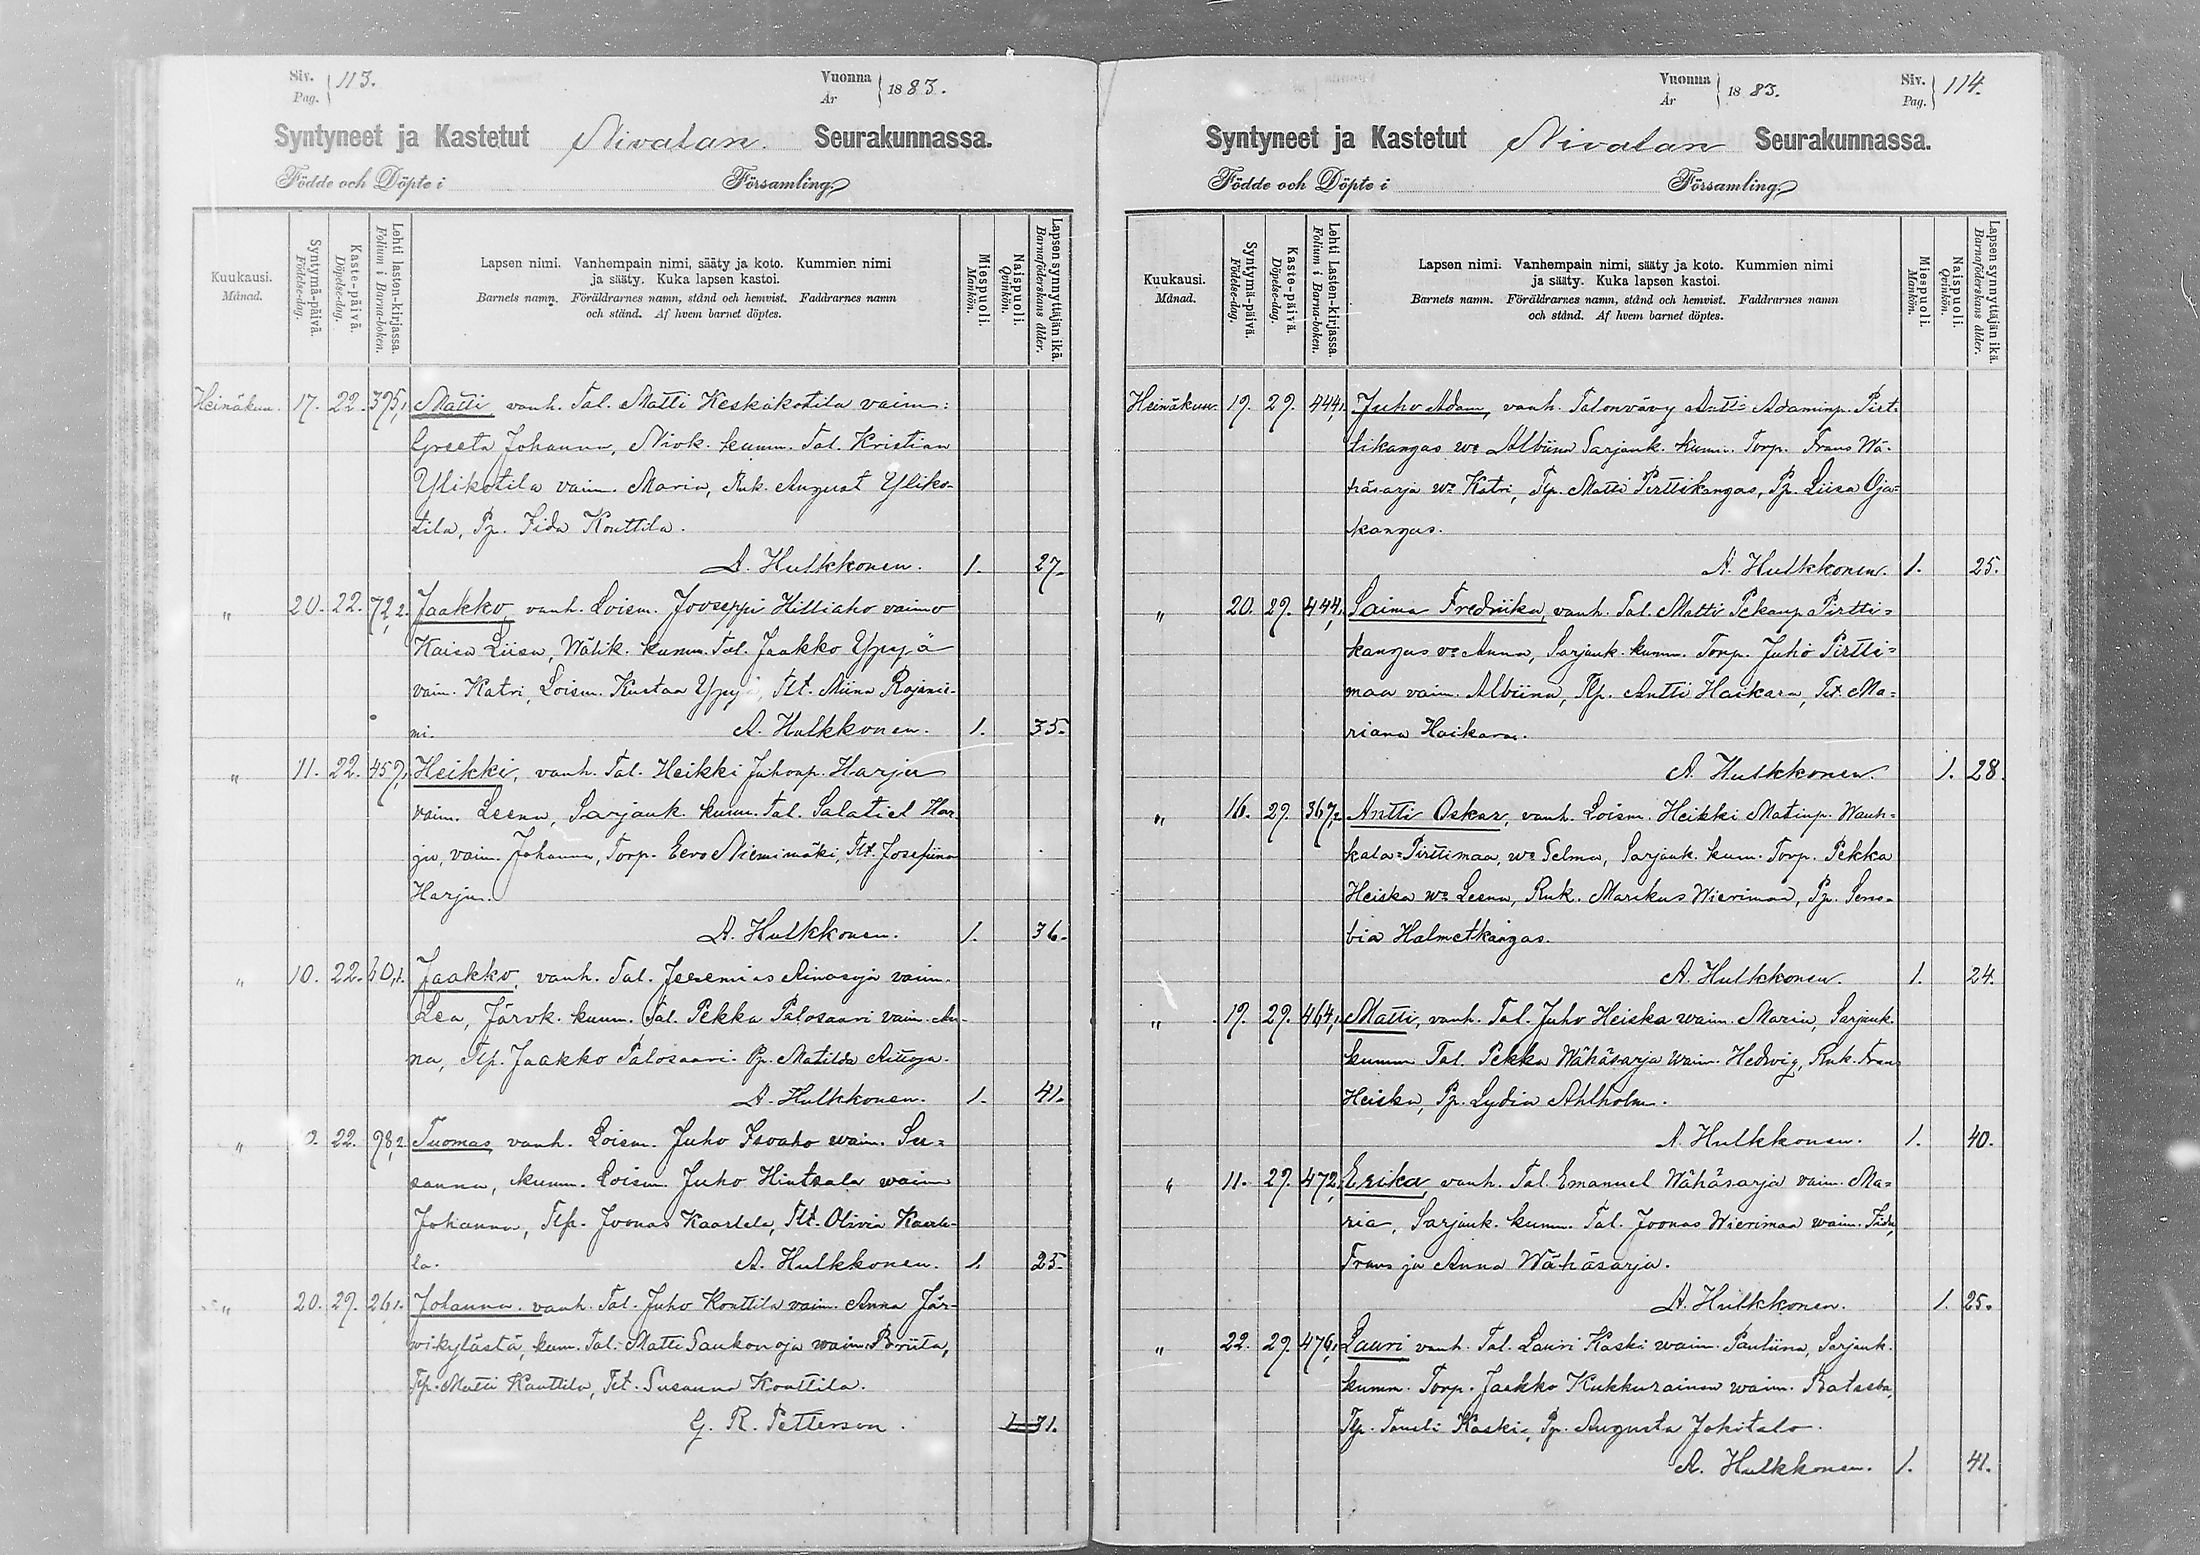 Siv. Pag. 113. Vuonna År 1883.
Syntyneet ja Kastetut Nivalan Seurakunnassa.
Födde och Döpte i Församling.
Kuukausi. Månad.
Syntymä-päivä. Födelse-dag.
Kaste-päivä. Döpelse-dag.
Lehti lasten-kirjassa. Folium i Barna-boken.
Lapsen nimi. Vanhempain nimi, sääty ja koto. Kummien nimi
ja sääty. Kuka lapsen kastoi.
Barnets namn. Föräldrarnes namn, stånd och hemvist. Faddrarnes namn
och stånd. Af hvem barnet döptes.
Miespuoli. Mankön.
Naispuoli. Qvinkön.
Lapsen synnyttäjän ikä. Barnaföderskans ålder.
Heinäkuu. 17. 22. 395,1 Matti vanh. Tal. Matti Keskikotila vaim:
Greeta Johanna, Nivk. kumm. Tal. Kristian
Ylikotila vaim. Maria, Ruk. August Yliko-
tila, Pp. Fida Konttila.
A. Hulkkonen. 1. 27.
" 20. 22. 72,2. Jaakko, vanh. Loism. Jooseppi Hilliaho vaimo
Kaisa Liisa, Wälik. kumm. Tal. Jaakko Yppyä
vaim. Katri, Loism. Kustaa Yppyä, Tlt. Miina Rajanie-
mi. A. Hulkkonen. 1. 35.
" 11. 22. 457,1 Heikki, vanh. Tal. Heikki Juhonp. Harju
vaim. Leena, Sarjank. kumm. Tal. Salatiel Har-
ju, vaim. Johanna, Torp. Eero Niemimäki, Tlt. Josefiina
Harju.
A. Hulkkonen. 1. 36.
" 10. 22. 40,1. Jaakko, vanh. Tal. Jeremias Ainasoja vaim.
Lea, Järvk. kumm. Tal. Pekka Palosaari vaim. An-
na, Tlp. Jaakko Palosaari. Pp. Matilda
A. Hulkkonen. 1. 41.
" 22. 98,2 Tuomas, vanh. Loism. Juho Isoaho waim. Su=
sanna, kumm. Loism. Juho Hintsala waim
Johanna, Tlp. Joonas Kaarlela, Tlt. Olivia Kaarle-
la. A. Hulkkonen. 1. 25.
" 20. 29. 26,1. Johanna. vanh. Tal. Juho Konttila vaim. Anna Jär-
wikylästä, kum. Tal. Matti Saukonoja waim. Briita,
Tlp. Matti Konttila, Tlt. Susanna Konttila.
G. R. Petterson. 1 31.
Vuonna År 1883. Siv. Pag. 114.
Syntyneet ja Kastetut Nivalan Seurakunnassa.
Födde och Döpte i Församling.
Kuukausi. Månad.
Syntymä-päivä. Födelse-dag.
Kaste-päivä. Döpelse-dag.
Lehti lasten-kirjassa. Folium i Barna-boken.
Lapsen nimi. Vanhempain nimi, sääty ja koto. Kummien nimi
ja sääty. Kuka lapsen kastoi.
Barnets namn. Föräldrarnes namn, stånd och hemvist. Faddrarnes namn
och stånd. Af hvem barnet döptes.
Miespuoli. Mankön.
Naispuoli. Qvinkön.
Lapsen synnyttäjän ikä. Barnaföderskans ålder.
Heinäkuu 19. 29. 444,1 Juho Adam, vanh. Talonvävy Antti Adaminp. Pirt-
tikangas wo Albiina Sarjank. kumm. Torp. Frans Wä-
häsarja wo Katri, Tlp. Matti Pirttikangas, Pp. Liisa Oja=
kangas.
A. Hulkkonen. 1. 25.
" 20. 29. 444,1 Saima Fredriika, vanh. Tal. Matti Pekanp. Pirtti=
kangas vo Anna, Sarjank. kumm. Torp. Juho Pirtti=
maa vaim. Albiina, Tlp. Antti Haikara, Tlt. Ma=
riana Haikara.
A. Hulkkonen. 1. 28.
" 16. 29. 367,2 Antti Oskar, vanh. Loism. Heikki Matinp. Wanh=
kala=Pirttimaa, wo Selma, Sarjank. kum. Torp. Pekka
Heiska wo Leena, Ruk. Marekus Wierimaa, Pp. Seno=
bia Halmetkangas.
A. Hulkkonen. 1. 24.
" 19. 29. 464,1 Matti, vanh. Tal. Juho Heiska waim. Maria, Sarjank.
kumm Tal. Pekka Wähäsarja waim. Hedvig, Ruk. Frans
Heiska, Pp. Lydia Ahlholm.
A. Hulkkonen. 1. 40.
" 11. 29. 472, Erika, vanh. Tal. Emanuel Wähäsarja vaim. Ma=
ria, Sarjank. kumm. Tal. Joonas Wierimaa waim. Fida,
Frans ja Anna Wähäsarja.
A. Hulkkonen. 1. 25.
" 22. 29. 476,1 Lauri vanh. Tal. Lauri Kaski waim. Pauliina, Sarjank.
kumm. Torp. Jaakko Kukkurainen waim. Batseba,
Tlp. Taneli Kaski, Pp. Augusta Jokitalo.
A. Hulkkonen. 1. 41.